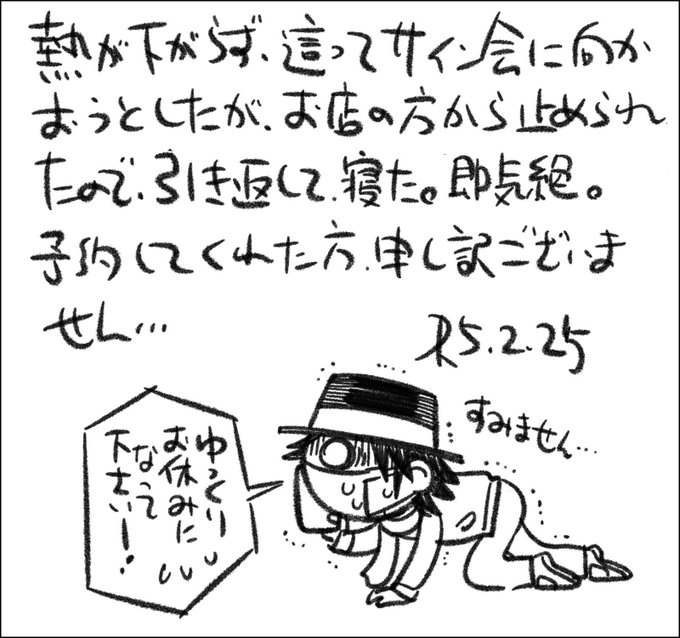 熱が下がらず、這ってサイン会に向か
おうとしたが、お店の方から止められ
たので、引き返して、寝た。即気絶。
予約してくれた方、申し訳ございま
せん…
R5.2.25
すみません…
ゆっくり
お休みに
なって
下さいー!